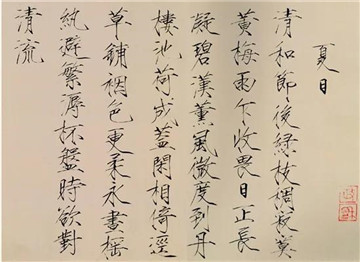 夏日
清和節後綠枝稠寂莫
黃梅雨乍收畏日正長
凝碧漢薰風微度到丹
樓池荷成蓋閑相倚逕
草鋪裀色更柔永晝搖
紈避繁溽杯盤時欲對
清流